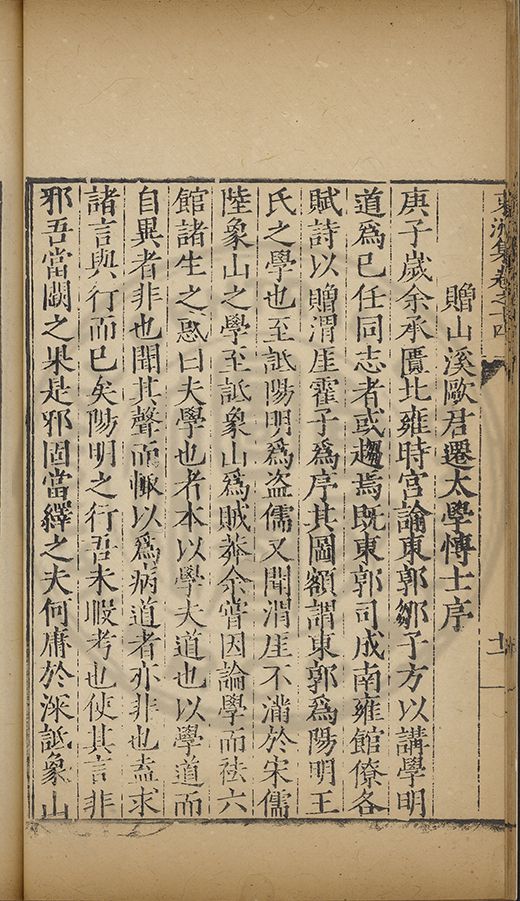 東洲集卷之十四
十一
贈山溪歐君遷太學博士序
庚子歲余承匱北雍時宮諭東郭鄒子方以講學明
道爲已任同志者或趨焉既東郭司成南雍館僚各
賦詩以贈渭厓霍子爲序其圖額謂東郭爲陽明王
氏之學也至詆陽明爲盗儒又聞渭厓不滿於宋儒
陸象山之學至詆象山爲賊莽余嘗因論學而祛六
館諸生之惑曰夫學也者本以學夫道也以學道而
自異者非也聞其聲而慚以爲病道者亦非也盍求
諸言與行而已矣陽明之行吾未暇考也使其言非
邪吾當闢之果是邪固當繹之夫何庸於深詆象山